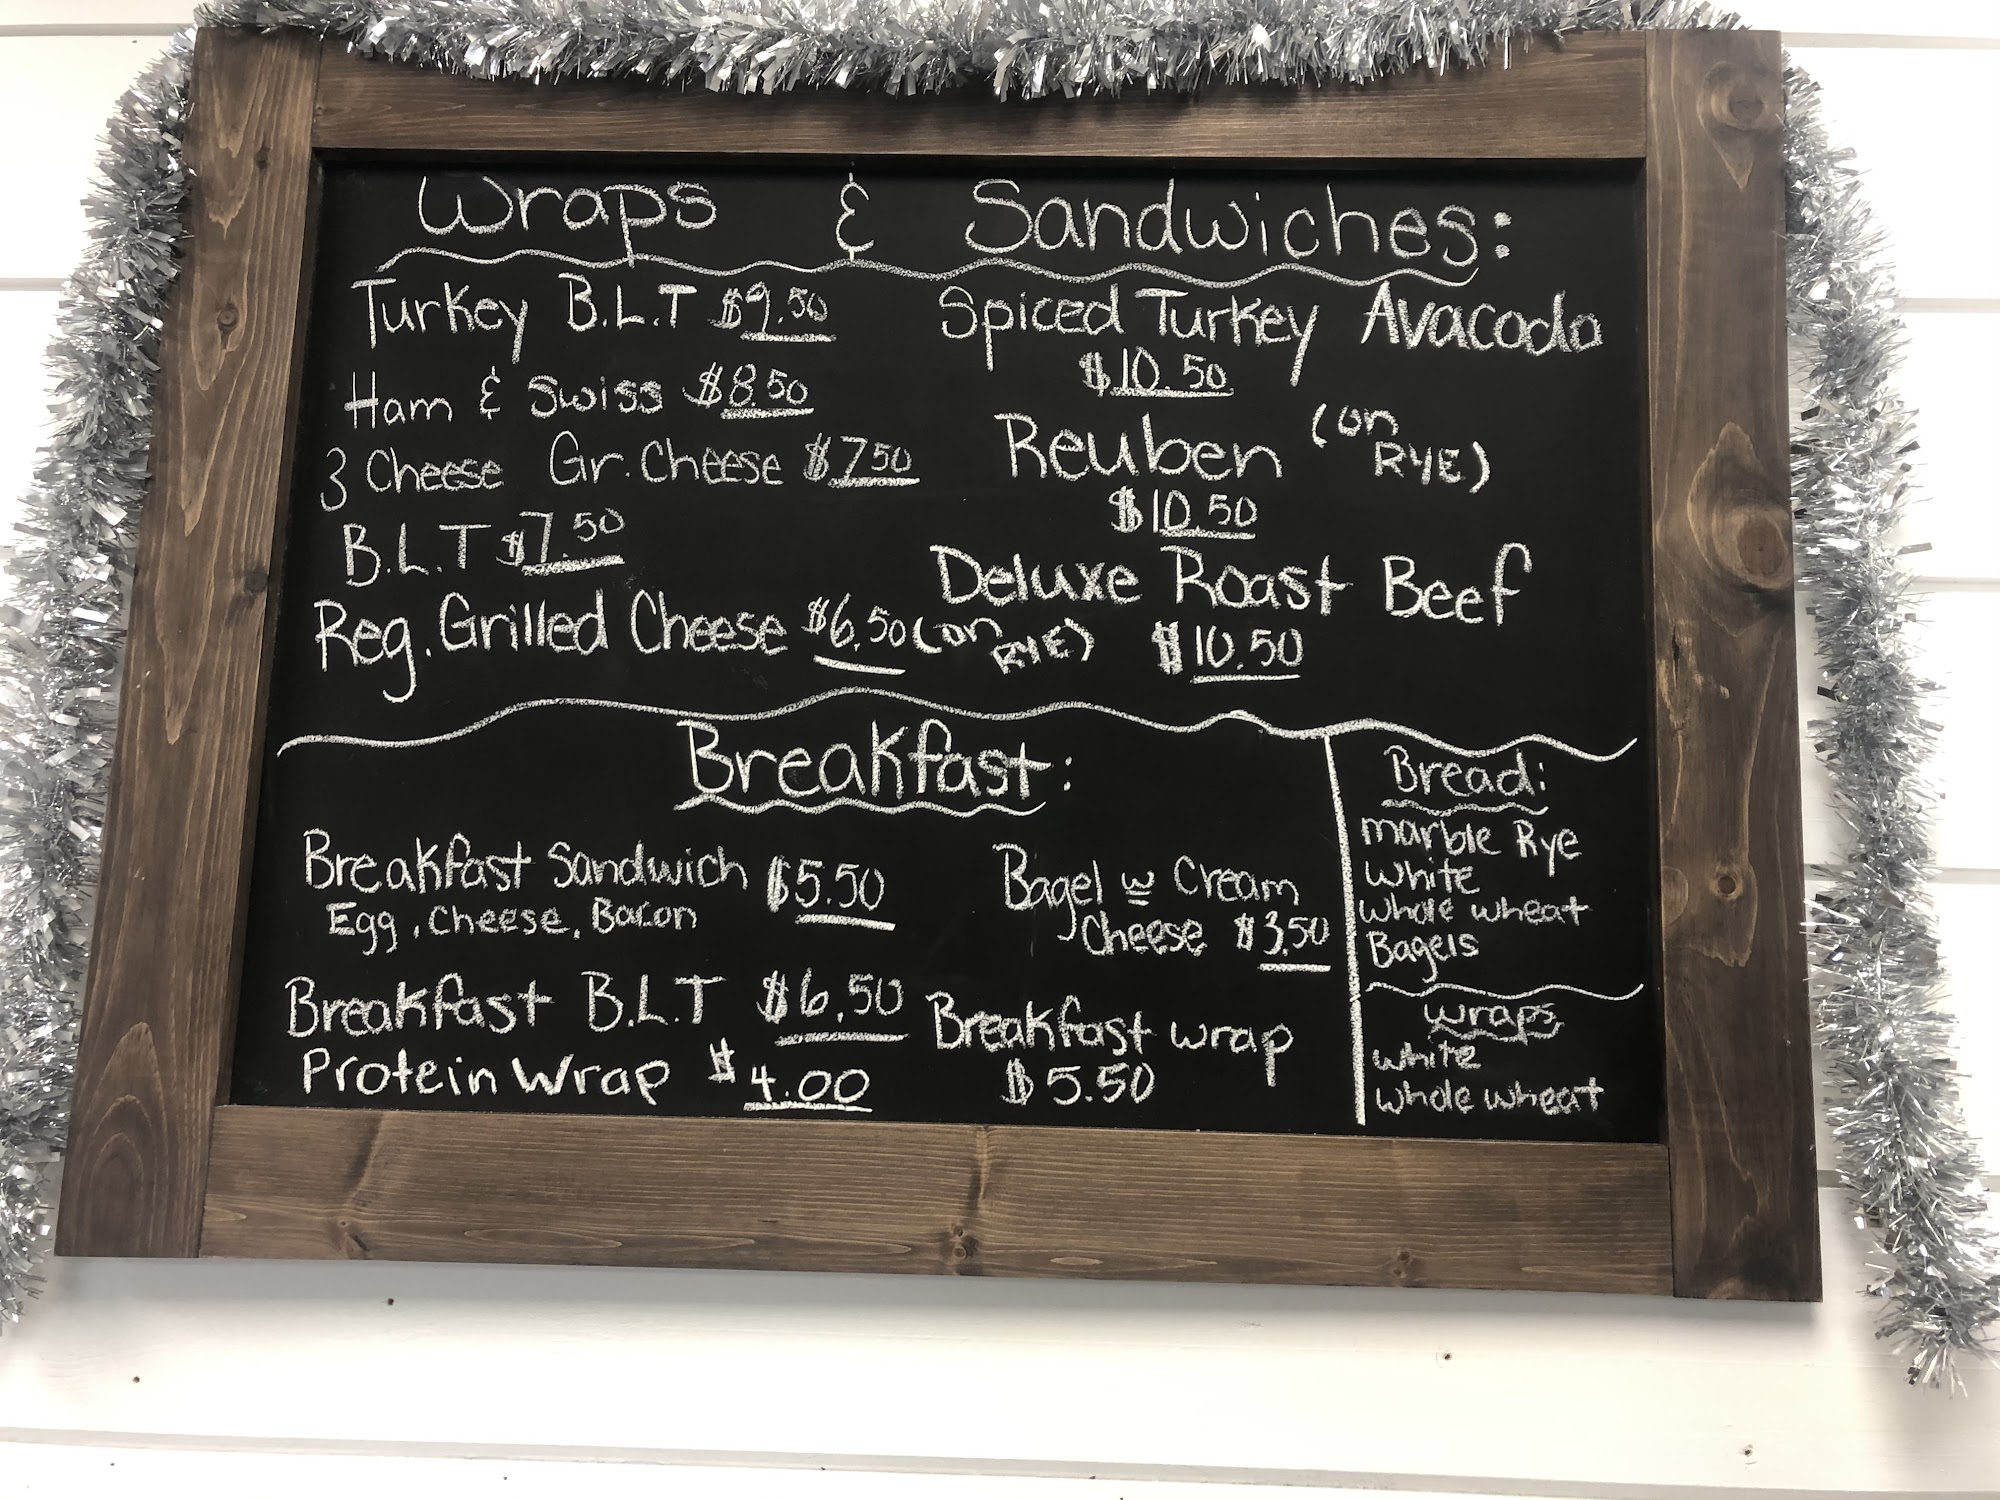 Wraps & Sandwiches:
Turkey B.L.T $9.50
Ham & Swiss $8.50
3 Cheese Gr. Cheese $7.50
B.L.T $7.50
Reg. Grilled Cheese $6.50
Spiced Turkey Avacodo
$10.50
Reuben (on
RYE)
$10.50
Deluxe Roast Beef
(on
RYE) $10.50
Breakfast:
Breakfast Sandwich $5.50
Egg, Cheese, Bacon
Breakfast B.L.T $6.50
Protein Wrap $4.00
Bagel w Cream
Cheese $3.50
Breakfast wrap
$5.50
Bread:
marble Rye
white
whole wheat
Bagels
wraps
white
whole wheat